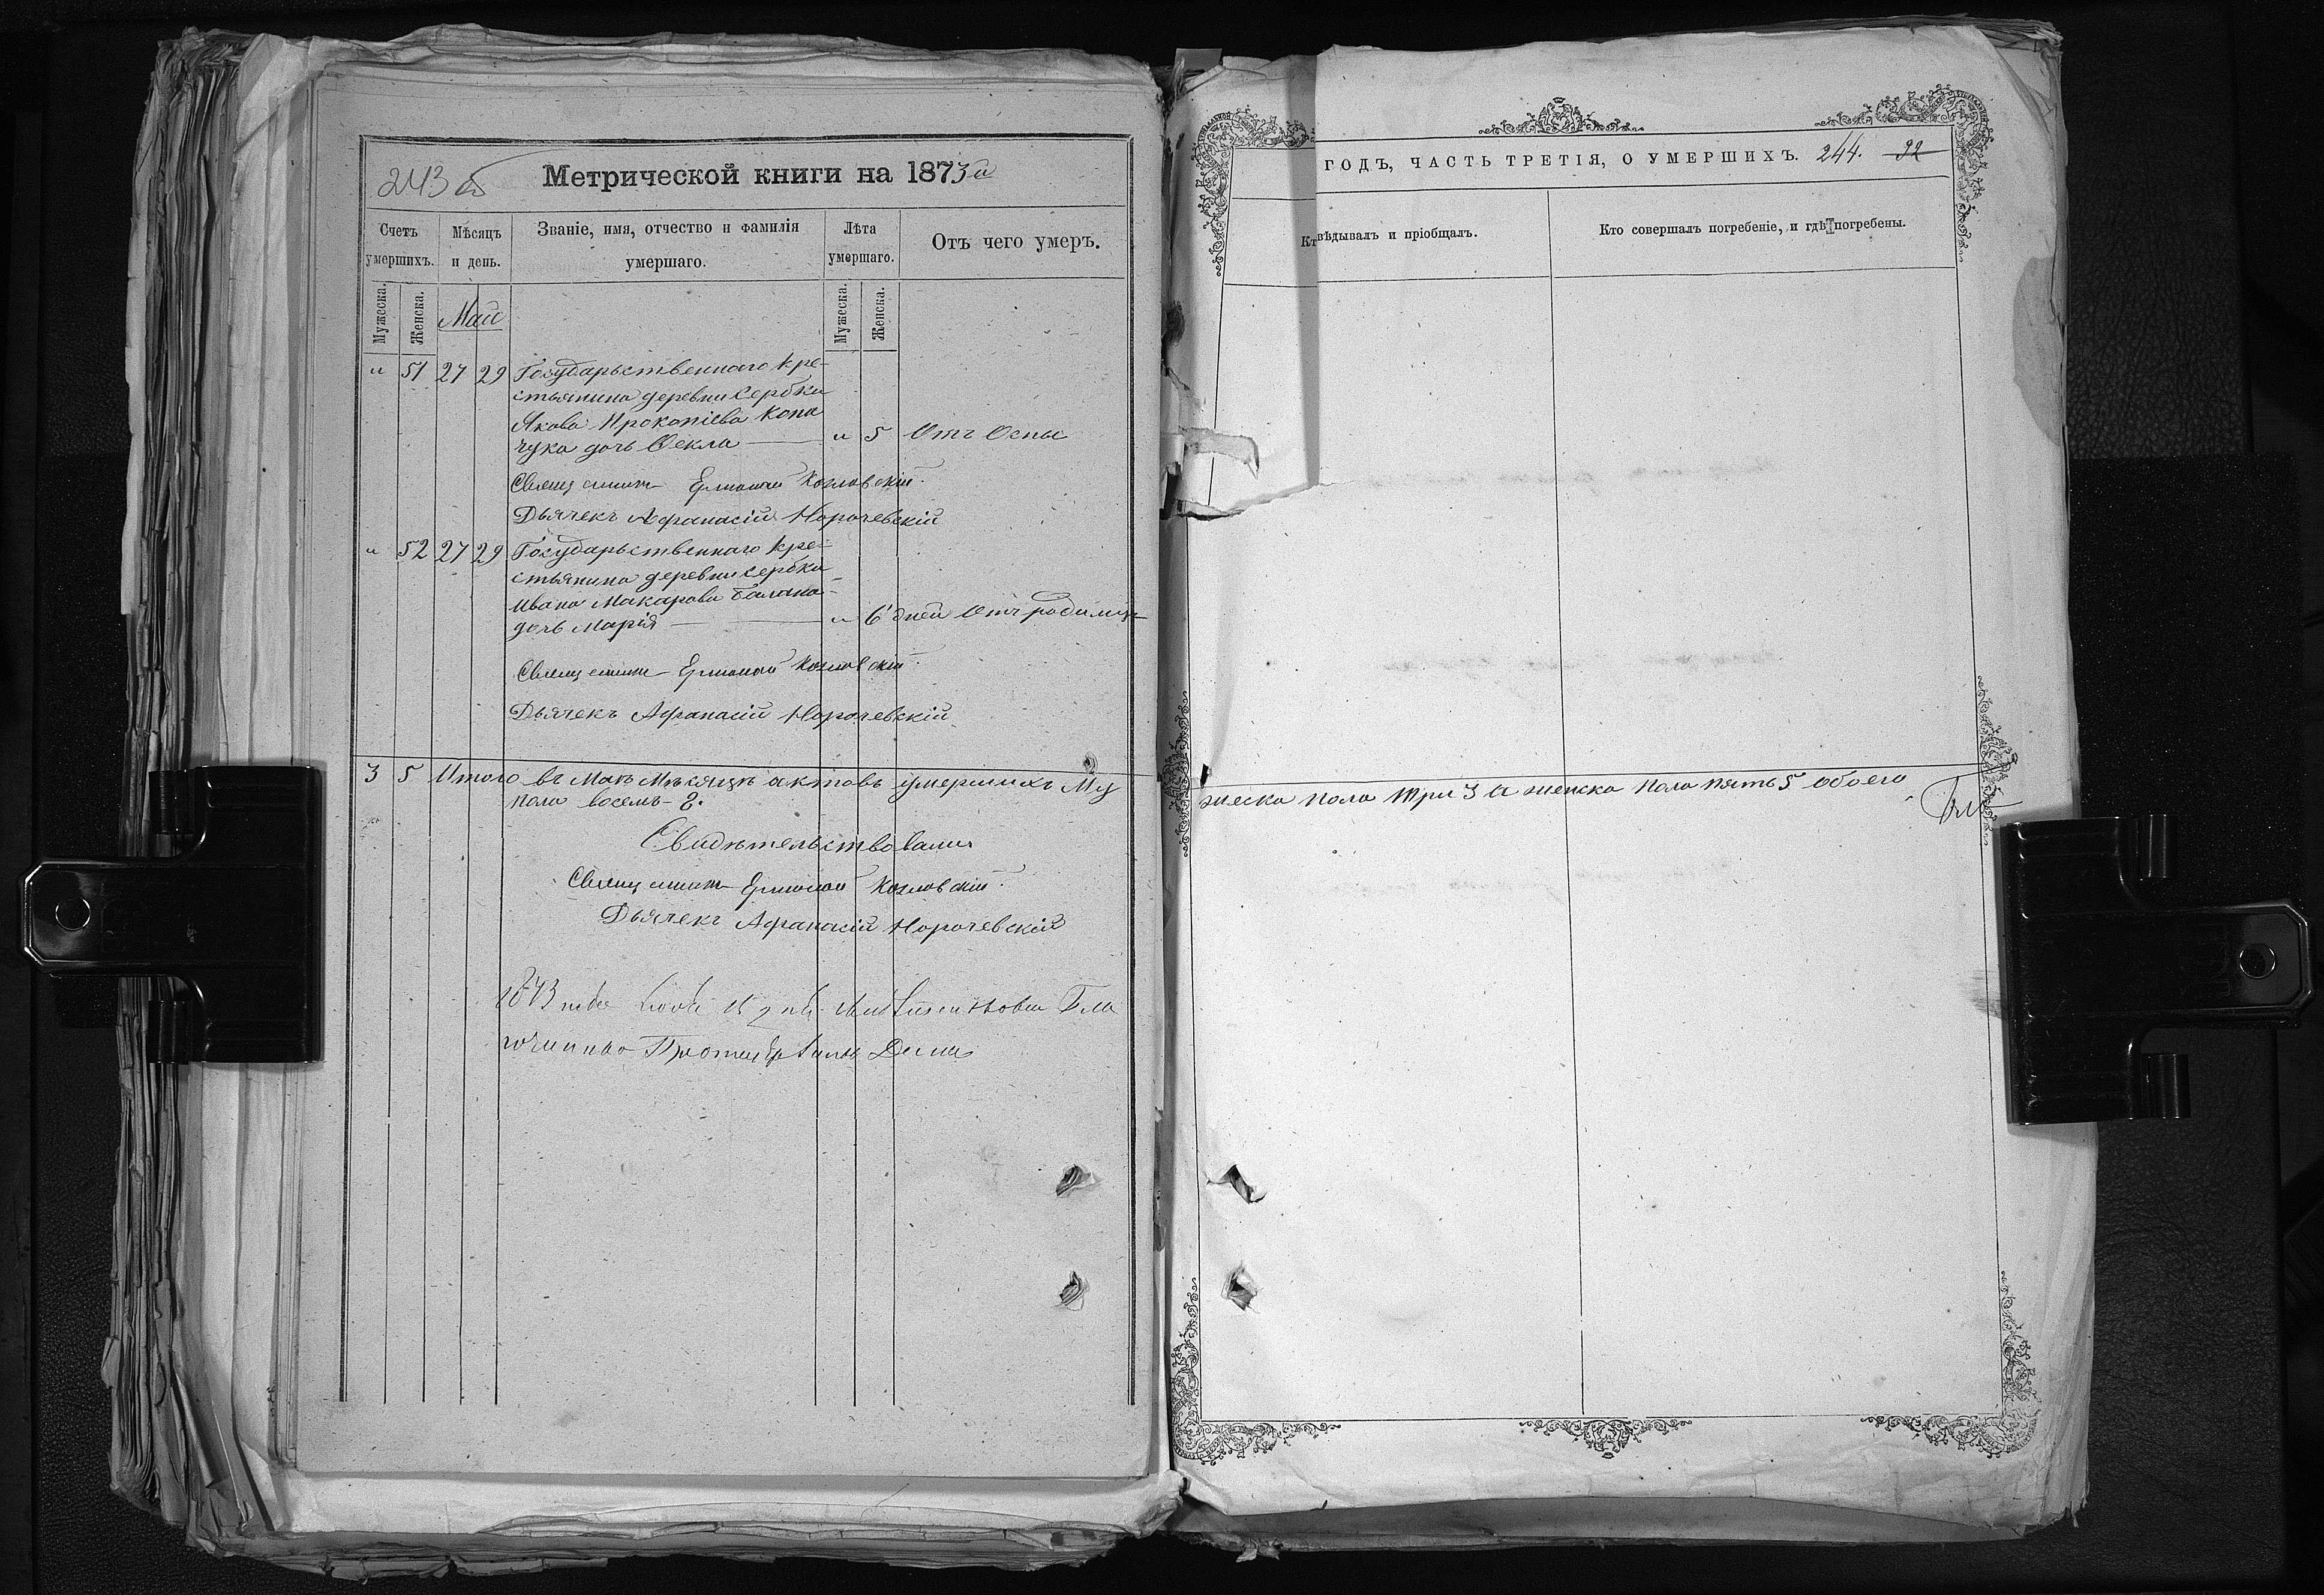 243 об
Метрической книги на 1873й
Счетъ умершихъ.
Мѣсяцъ и день.
Званіе, имя, отчество и фамилія умершаго.
Лѣта умершаго.
Отъ чего умеръ.
Мужеска.
Женска.
Май
Мужеска.
Женска.
" 51 27 29 Государьственнаго кре-
стьянина деревни Сербки
Якова Прокопіева Копа
чука дочь Ѳекла — " 5 Отъ Оспы
Священникъ Ермолай Козловскій.
Дьячекъ Афанасій Норочевскій
" 52 27 29 Государьственнаго кре-
стьянина деревни Сербки
Ивана Макарова Балана-
дочь Марія — " 6 дней Отъ родимца
Священникъ Ермолай Козловскій.
Дьячекъ Афанасій Норочевскій
3 5 Итого въ Маѣ Мѣсяцѣ актовъ умершихъ Му
пола восемь - 8.
Свидѣтельствовали
Священникъ Ермолай Козловскій.
Дьячекъ Афанасій Норочевскій
1873
ГОДЪ, ЧАСТЬ ТРЕТІЯ, О УМЕРШИХЪ. 244. 92
Кт вѣдывалъ и пріобщалъ.
Кто совершалъ погребеніе, и гдѣ погребены.
жеска пола три 3 а женска пола пять 5 обоего